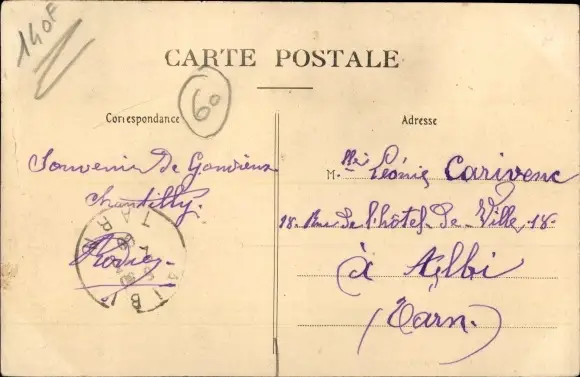 140F
CARTE POSTALE
60
Correspondance
Adresse
Souvenir de Gouvieux
Chantilly.
Rodier
M.lle Léonie Carivenc
18. Rue de l'hôtel de Ville, 18.
à Albi
(Tarn.)
ALBI
TARN